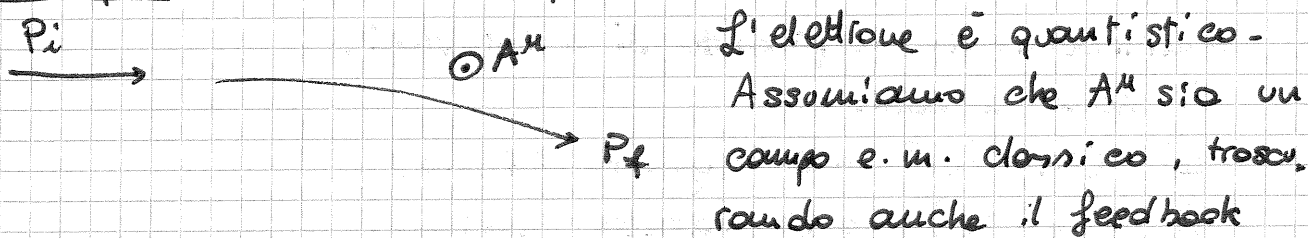 Pi
Aᴹ
Pf
L'elettrone è quantistico.
Assumiamo che Aᴹ sia un
campo e.m. classico, trascu.
rando anche il feedback